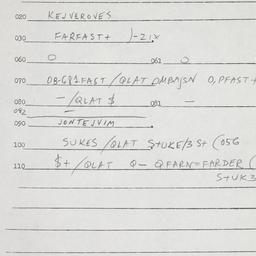 020 KEJVEROVES
030 FARFAST+ )-ZIX
060 O 061 O
070 08-684 FAST /QLAT OMBAJSN O,PFAST+
080 - /QLAT $ 081 -
082 -
090 JONTEJVIM .
100 SUKES /QLAT S+UKE/3 S+ (056
110 $+ /QLAT Q- QFARN=FARDER (
S+UK3